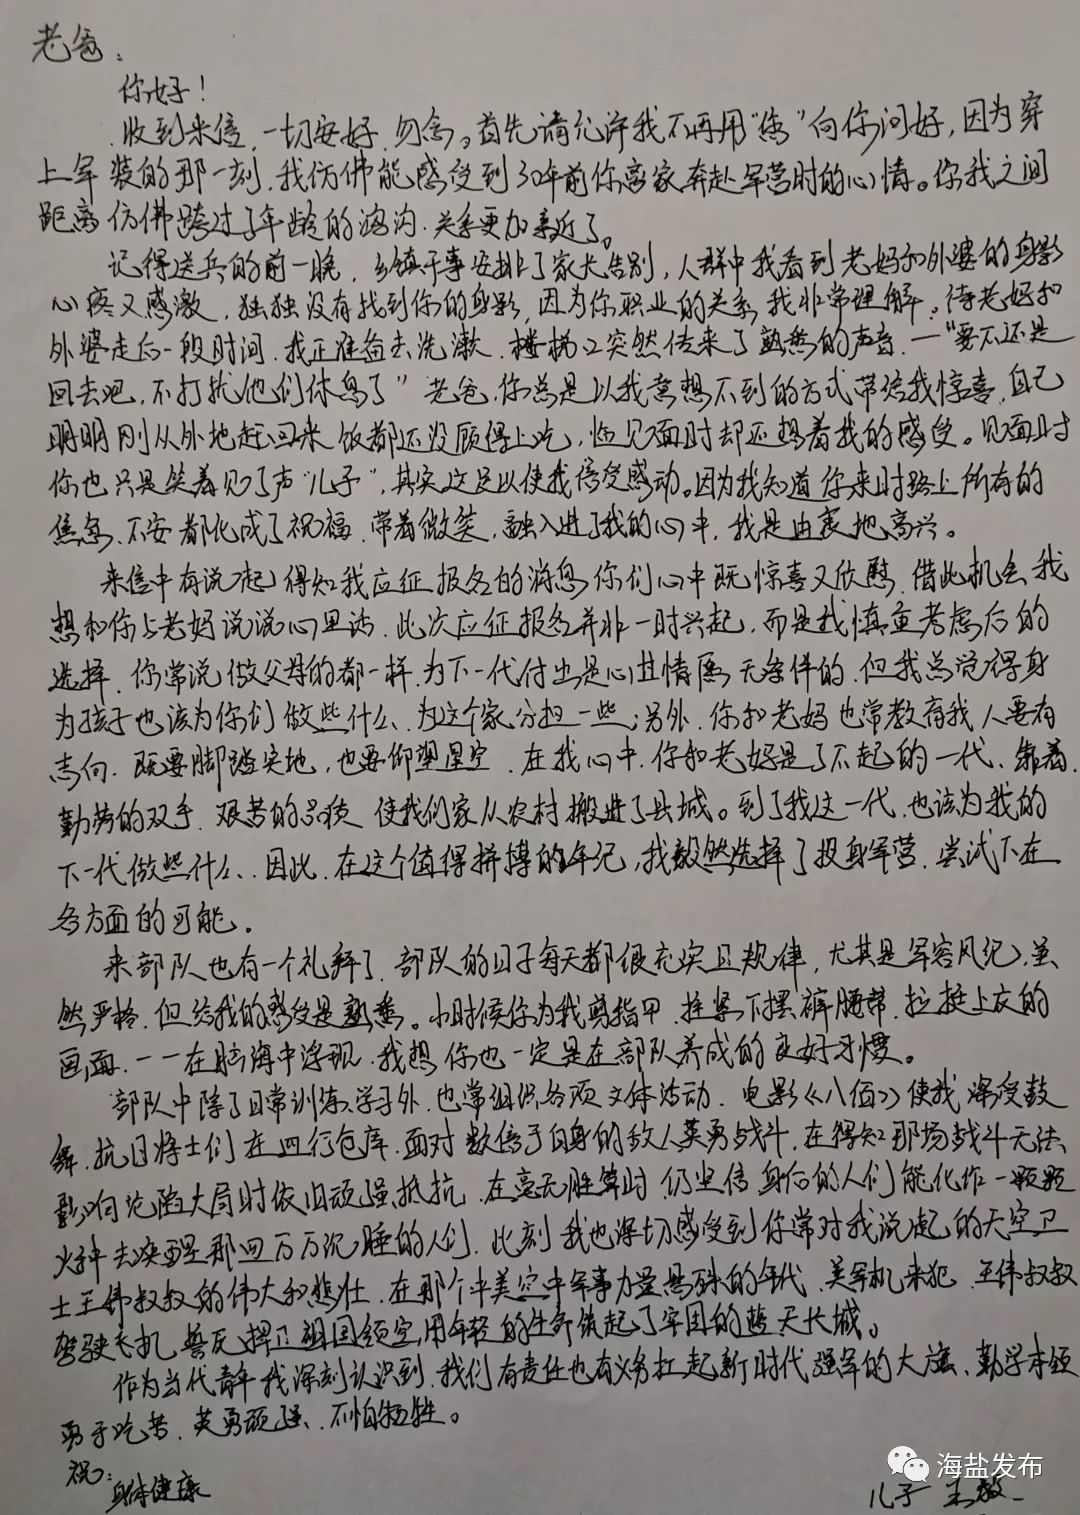 老爸：
你好！
收到来信，一切安好，勿念。首先请允许我不再用“您”向你问好，因为穿
上军装的那一刻，我仿佛能感受到30年前你离家奔赴军营时的心情。你我之间
距离仿佛跨过了年龄的鸿沟，关系更加亲近了。
记得送兵的前一晚，乡镇干事安排了家长告别，人群中我看到老妈和外婆的身影
心疼又感激，独独没有找到你的身影，因为你职业的关系，我非常理解。待老妈和
外婆走后一段时间，我正准备去洗漱，楼梯口突然传来了熟悉的声音，一“要不还是
回去吧，不打扰他们休息了”老爸，你总是以我意想不到的方式带给我惊喜，自己
明明刚从外地赶回来饭都还没顾得上吃，临见面时却还想着我的感受。见面时
你也只是笑着见了声“儿子”，其实这足以使我倍受感动。因为我知道你来时路上所有的
焦急、不安都化成了祝福，带着微笑，融入进了我的心中，我是由衷地高兴。
来信中有说起得知我应征报名的消息你们心中既惊喜又欣慰，借此机会我
想和你与老妈说说心里话，此次应征报名并非一时兴起，而是我慎重考虑后的
选择，你常说做父母的都一样，为下一代付出是心甘情愿无条件的，但我总觉得身
为孩子也该为你们做些什么、为这个家分担一些；另外，你和老妈也常教育我人要有
志向，既要脚踏实地，也要仰望星空，在我心中，你和老妈是了不起的一代、靠着
勤劳的双手、艰苦的品质，使我们家从农村搬进了县城。到了我这一代，也该为我的
下一代做些什么、因此，在这个值得拼搏的年纪，我毅然选择了投身军营，尝试下在
各方面的可能。
来部队也有一个礼拜了，部队的日子每天都很充实且规律，尤其是军容风纪，虽
然严格，但给我的感受是熟悉。小时候你为我剪指甲，拴紧下摆裤腰带，拉挺上衣的
画面，一一在脑海中浮现，我想你也一定是在部队养成的良好习惯。
部队中除了日常训练、学习外，也常组织各项文体活动，电影《八佰》使我深受鼓
舞，抗日将士们在四行仓库，面对数倍于自身的敌人英勇战斗，在得知那场战斗无法
影响沦陷大局时依旧顽强抵抗，在毫无胜算时，仍坚信身后的人们能化作一颗颗
火种去唤醒那四万万沉睡的人们，此刻我也深切感受到你常对我说起的天空卫
士王伟叔叔的伟大和悲壮，在那个中美空中军事力量悬殊的年代，美军机来犯，王伟叔叔
驾驶飞机，誓死捍卫祖国领空，用年轻的生命筑起了牢固的蓝天长城。
作为当代青年我深刻认识到，我们有责任也有义务扛起新时代强军的大旗、勤学本领
勇于吃苦，英勇顽强、不怕牺牲。
祝：
身体健康
儿子 王
海盐发布